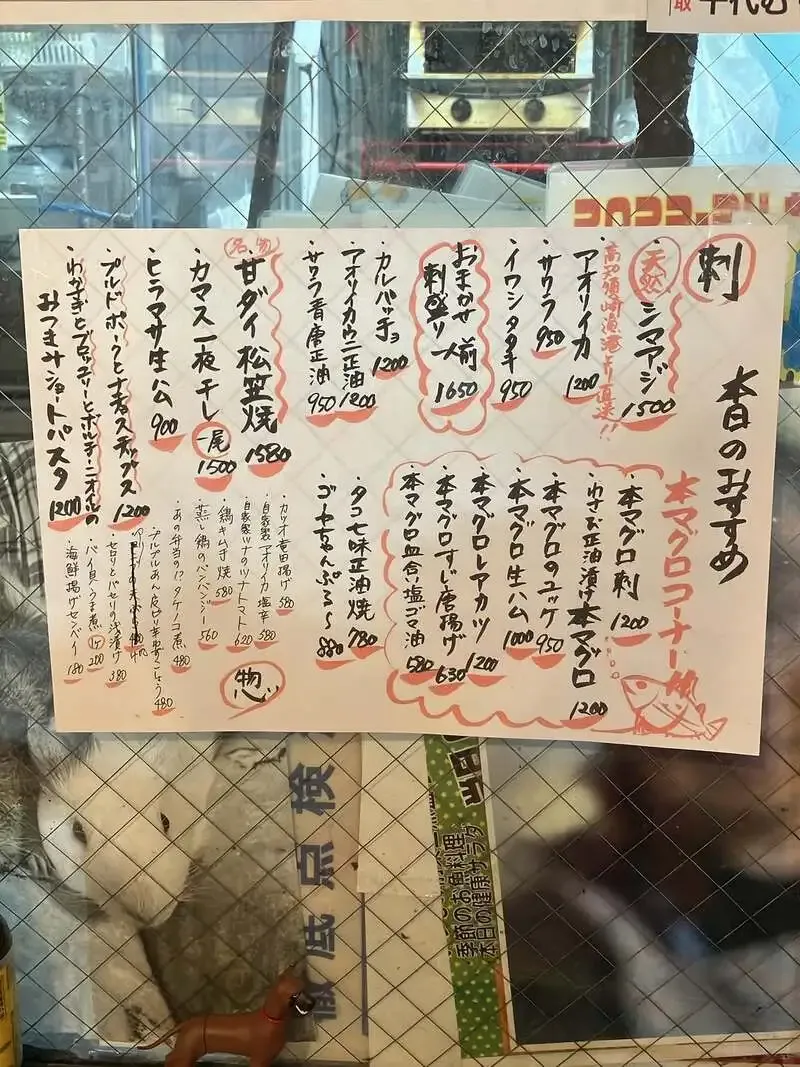 本日のおすすめ
刺
天然
・シマアジ 1500
高知須崎漁港より直送!!
・アオリイカ 1200
・サワラ 950
・イワシタタキ 950
おまかせ刺盛り一人前 1650
・カルパッチョ 1200
・アオリイカウニ正油 1200
・サワラ香唐正油 950
名物
・甘ダイ松笠焼 1580
・カマス一夜干し 一尾 1500
・ヒラマサ生ハム 900
・プルドポークとナチョスチップス 1200
・わかさぎとブロッコリーとポルチーニオイルの
おつまみショートパスタ 1200
本マグロコーナー
・本マグロ刺 1200
・わさび正油漬け本マグロ 1200
・本マグロのユッケ 950
・本マグロ生ハム 1000
・本マグロレアカツ 1200
・本マグロすじ唐揚げ 630
・本マグロ血合い塩ゴマ油 580
・タコ七味正油焼 780
・ゴーヤちゃんぷる〜 880
惣
・カツオ竜田揚げ 580
・自家製アオリイカ塩辛 580
・自家製ツナのツナトマト 620
・鶏キムチ焼 580
・蒸し鶏のバンバンジー 560
・あの弁当のタケノコ煮 480
480
・セロリとパセリの浅漬け 380
・バイ貝うま煮 1ケ 200
・海鮮揚げセンベイ 180
徹底点検
季節のお魚料理
本日の健康サラダ